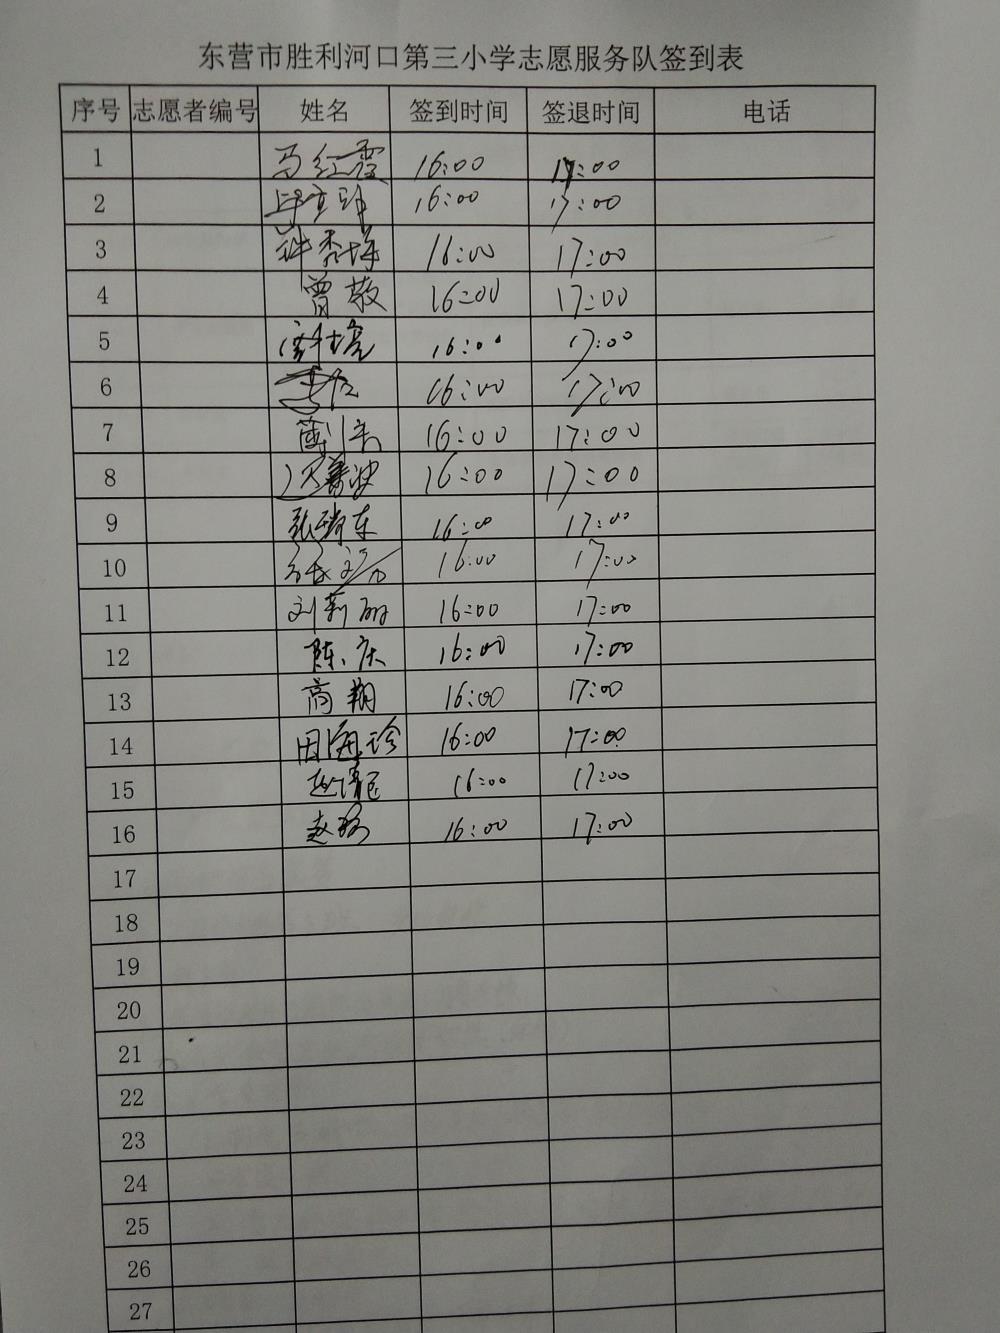 东营市胜利河口第三小学志愿服务队签到表
序号 志愿者编号 姓名 签到时间 签退时间 电话
1 马红霞 16:00 17:00
2 16:00 17:00
3 16:00 17:00
4 曾敬 16:00 17:00
5 16:00 17:00
6 16:00 17:00
7 16:00 17:00
8 16:00 17:00
9 张瑞东 16:00 17:00
10 16:00 17:00
11 刘莉丽 16:00 17:00
12 陈庆 16:00 17:00
13 高翔 16:00 17:00
14 田海珍 16:00 17:00
15 16:00 17:00
16 16:00 17:00
17
18
19
20
21
22
23
24
25
26
27